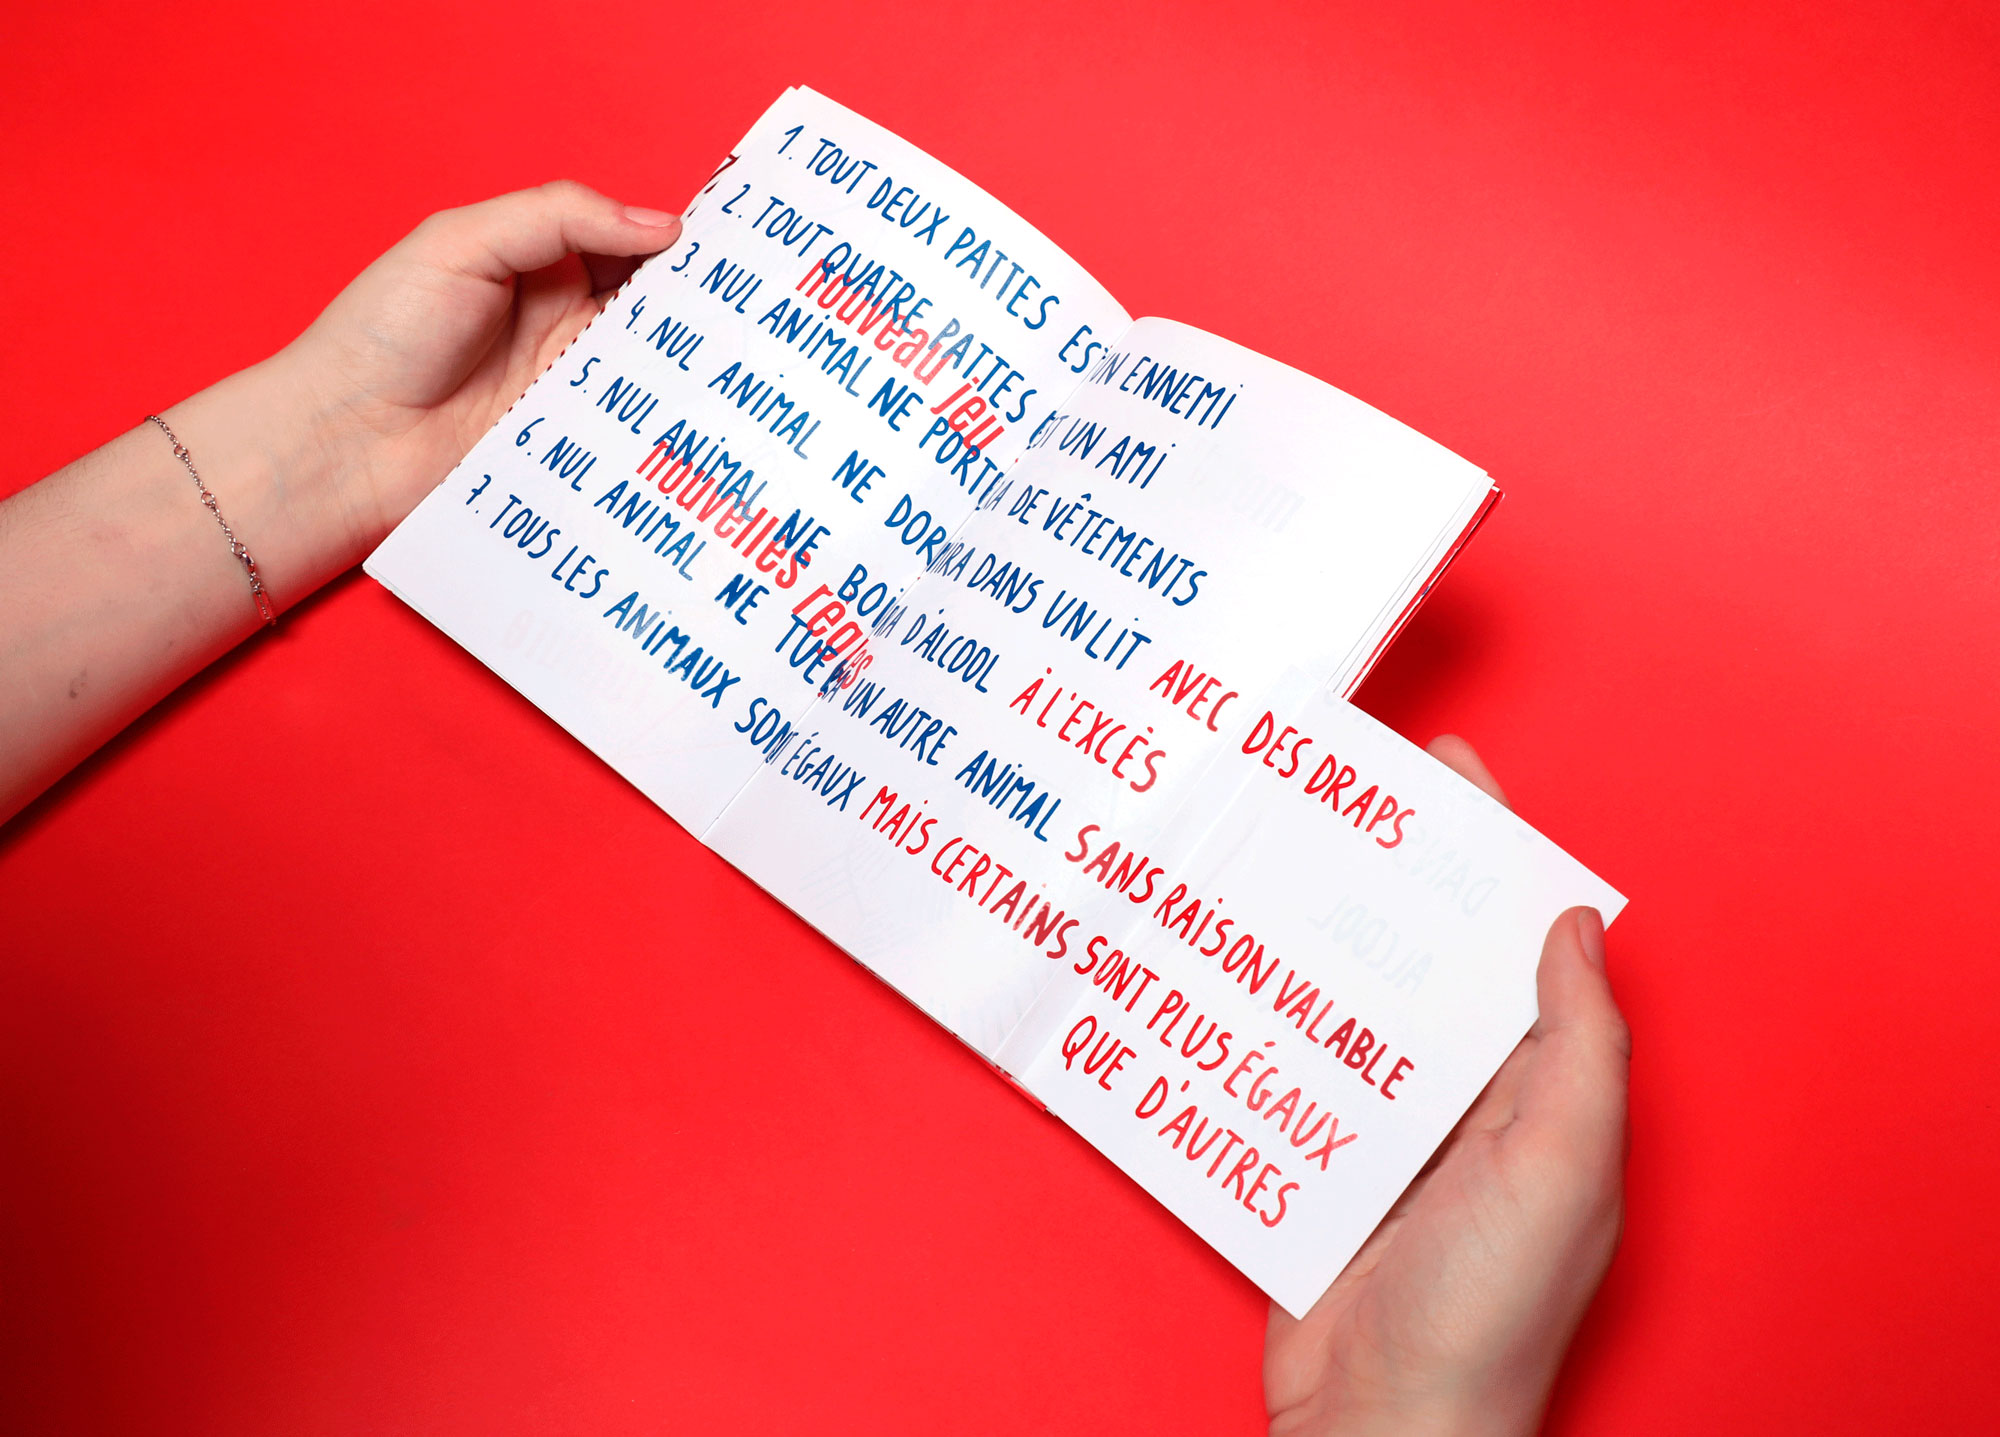 1. TOUT DEUX PATTES EST UN ENNEMI
2. TOUT QUATRE PATTES EST UN AMI
3. NUL ANIMAL NE PORTERA DE VÊTEMENTS
4. NUL ANIMAL NE DORMIRA DANS UN LIT AVEC DES DRAPS
5. NUL ANIMAL NE BOIRA D'ALCOOL À L'EXCÈS
6. NUL ANIMAL NE TUERA UN AUTRE ANIMAL SANS RAISON VALABLE
7. TOUS LES ANIMAUX SONT ÉGAUX MAIS CERTAINS SONT PLUS ÉGAUX
QUE D'AUTRES
nouveau jeu
nouvelles regles